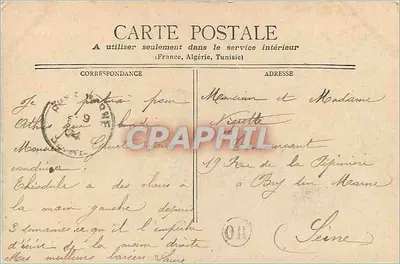 CARTE POSTALE
A utiliser seulement dans le service intérieur
(France, Algérie, Tunisie)
CORRESPONDANCE
Je partirai pour
que lundi
Monsieur
Théodule a des clous à
la main gauche depuis
3 semaines ce qui l'empêche
d'écrire de la main droite
Mes meilleurs baisers Laure
ADRESSE
Monsieur et Madame
Commerçant
19 Rue de la Pépinière
à Bry sur Marne
(Seine)
OR
CPAPHIL